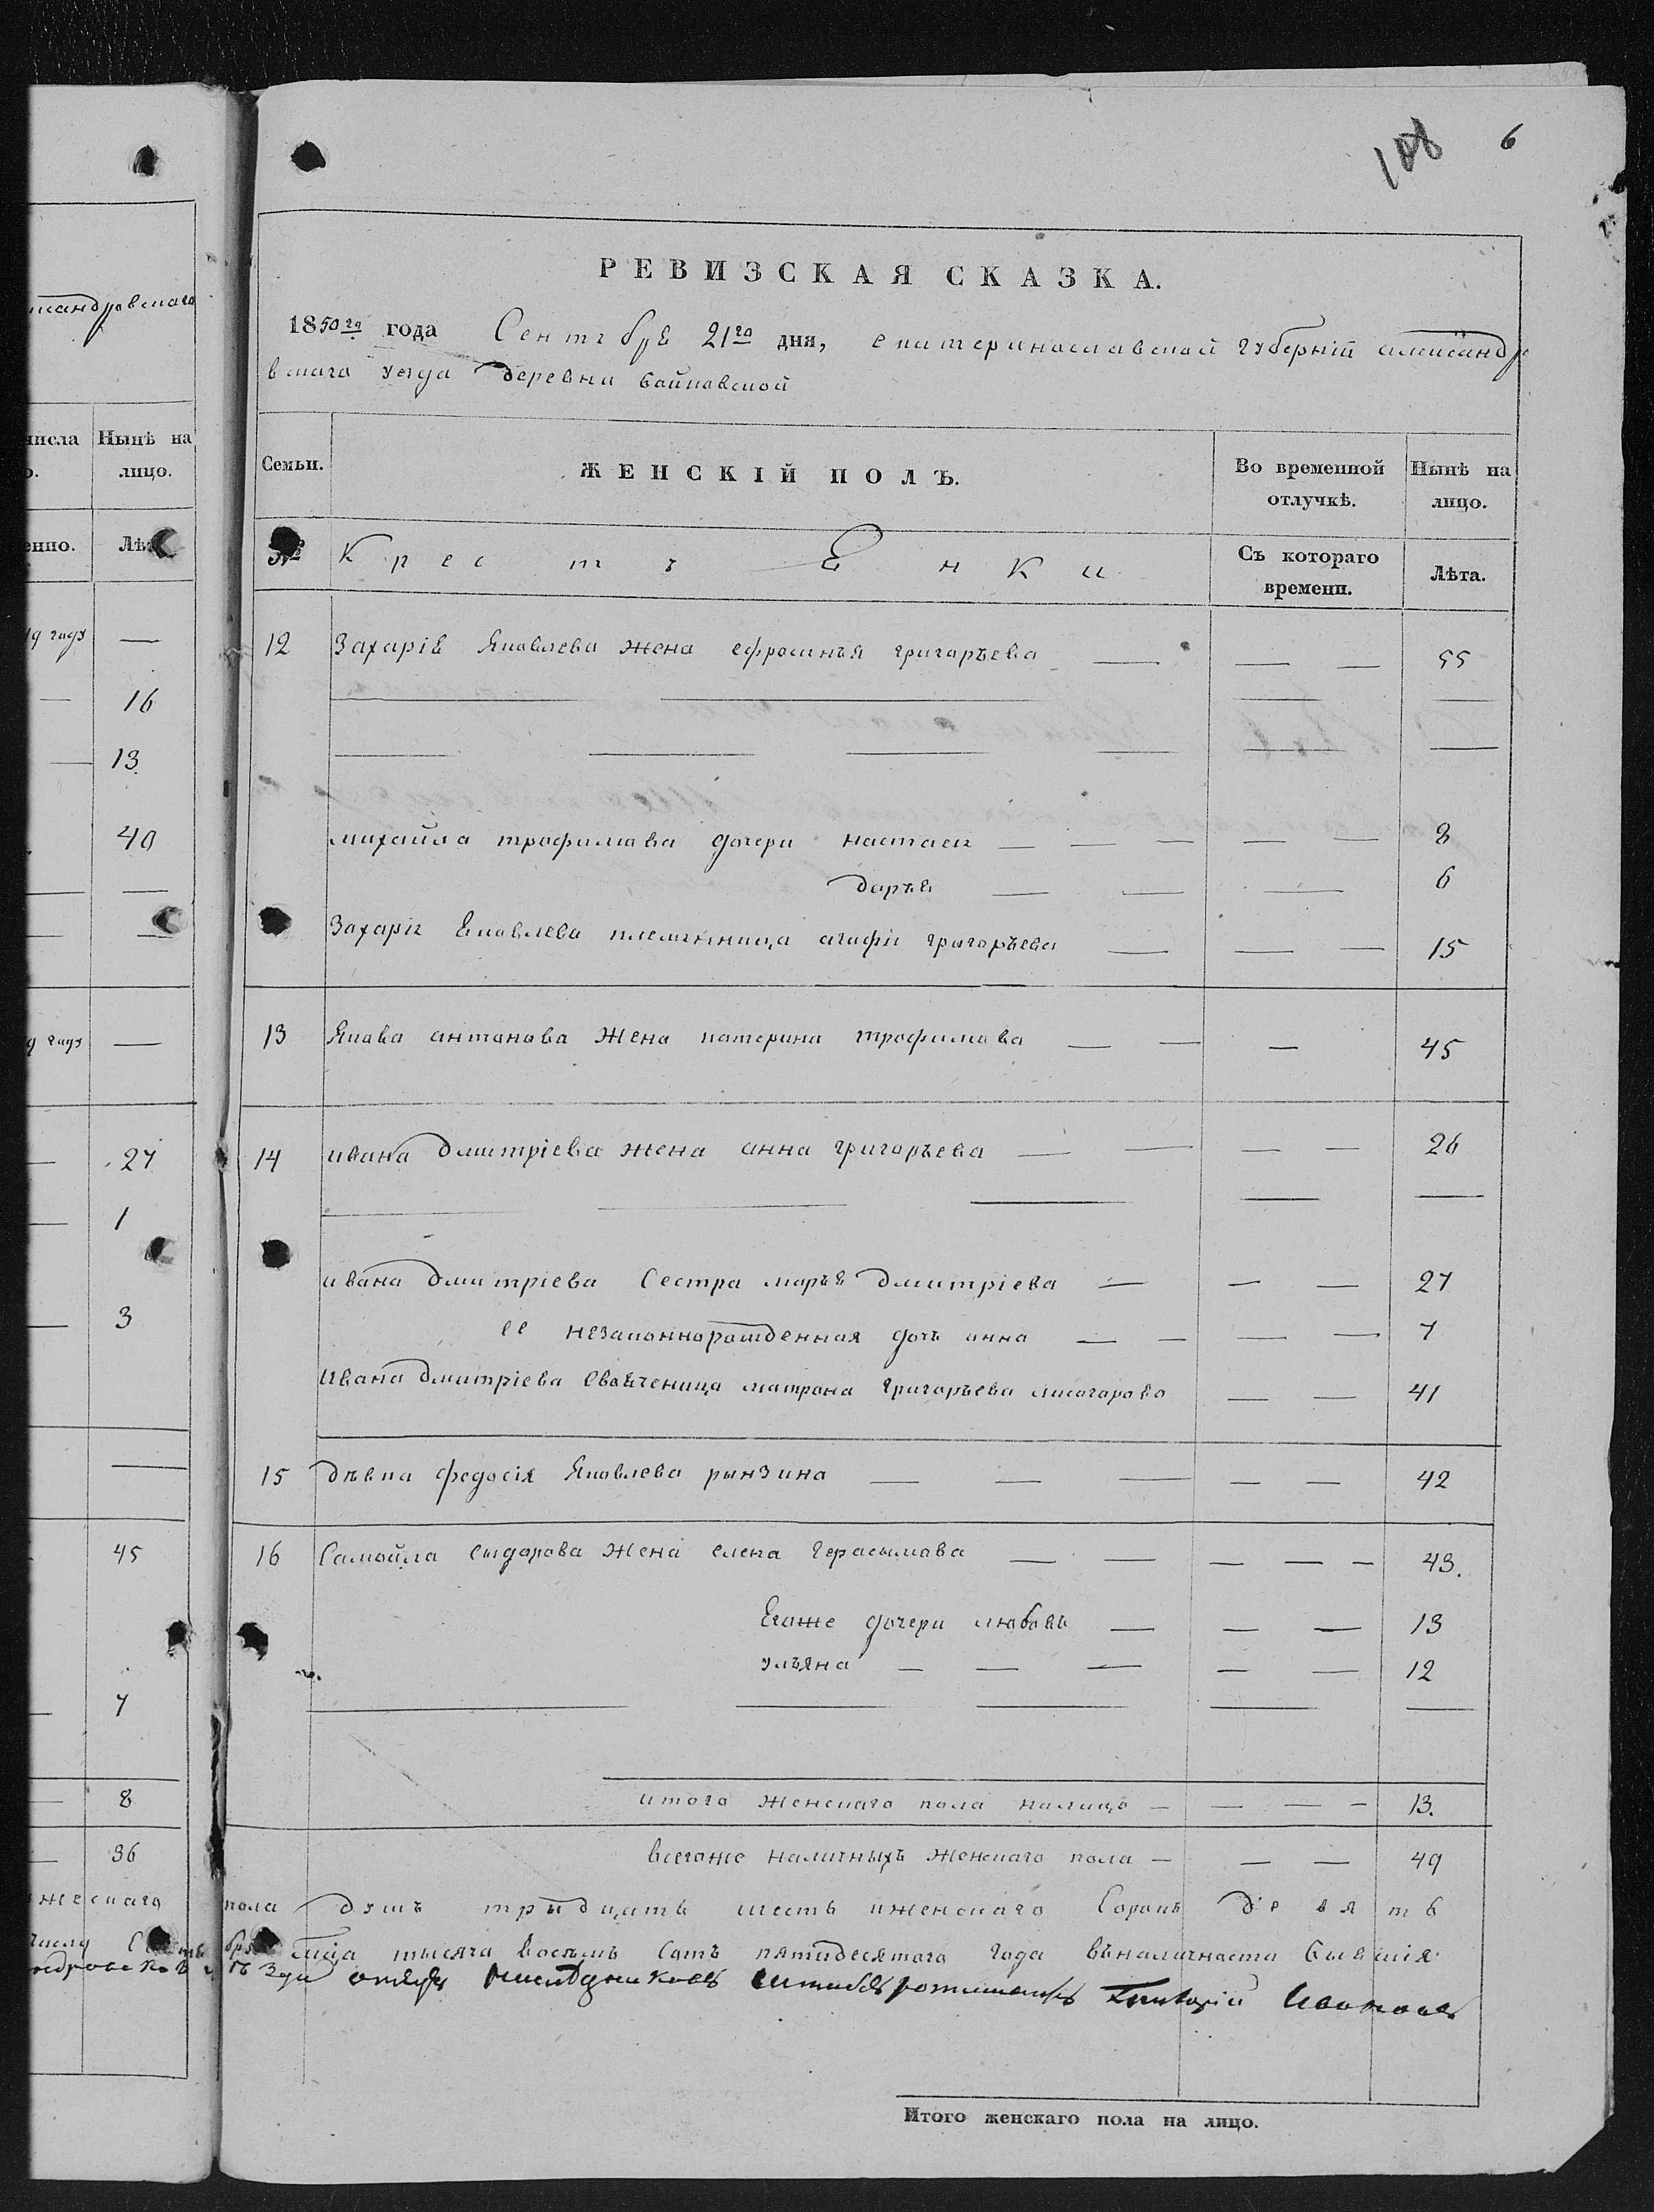 108 6
мандровскаго
РЕВИЗСКАЯ СКАЗКА.
1850го года Сентебрѣ 21го дня, екатеринославской губерній александро
вскаго уезда деревни
числа
Нынѣ на
лицо.
Семьи.
ЖЕНСКІЙ ПОЛЪ.
Во временной
отлучкѣ.
Нынѣ на
лицо.
Лѣта
№
Крестъенки
Съ котораго
времени.
Лѣта.
году —
16
13
40
27
1
3
45
7
8
36
12 Захаріѣ Яковлева жена ефросинъя григоръева — — — 55
михайла трофимова дочери настасия — — — — — 8
даръя — — — 6
Захаріи Яковлева племеница агафіи григоръева — — — 15
13 Якова антонова жена катерина трофимова — — — 45
14 ивана дмитріева жена анна григоръева — — — — 26
ивана дмитріева Сестра маръѣ дмитріева — — — 27
ее незаконнорожденная дочъ анна — — — — 7
Ивана дмитріева матрона Григоръева — — 41
15 дѣвка федосія Яковлева рынзина — — — — — 42
16 Самойла сыдорова жена елена герасымова — — — — — 43.
Егоже дочери любовъ — — — 13
улъяна — — — — — 12
итого женскаго пола налицо — — — — 13.
всегоже наличныхъ женскаго пола — — — 49
пола душъ тридцатъ шестъ иженскаго Сорокъ девятъ
тысяча восемъ Сотъ пятидесятого года въналичности бывшія
Григорій
Итого женскаго пола на лицо.